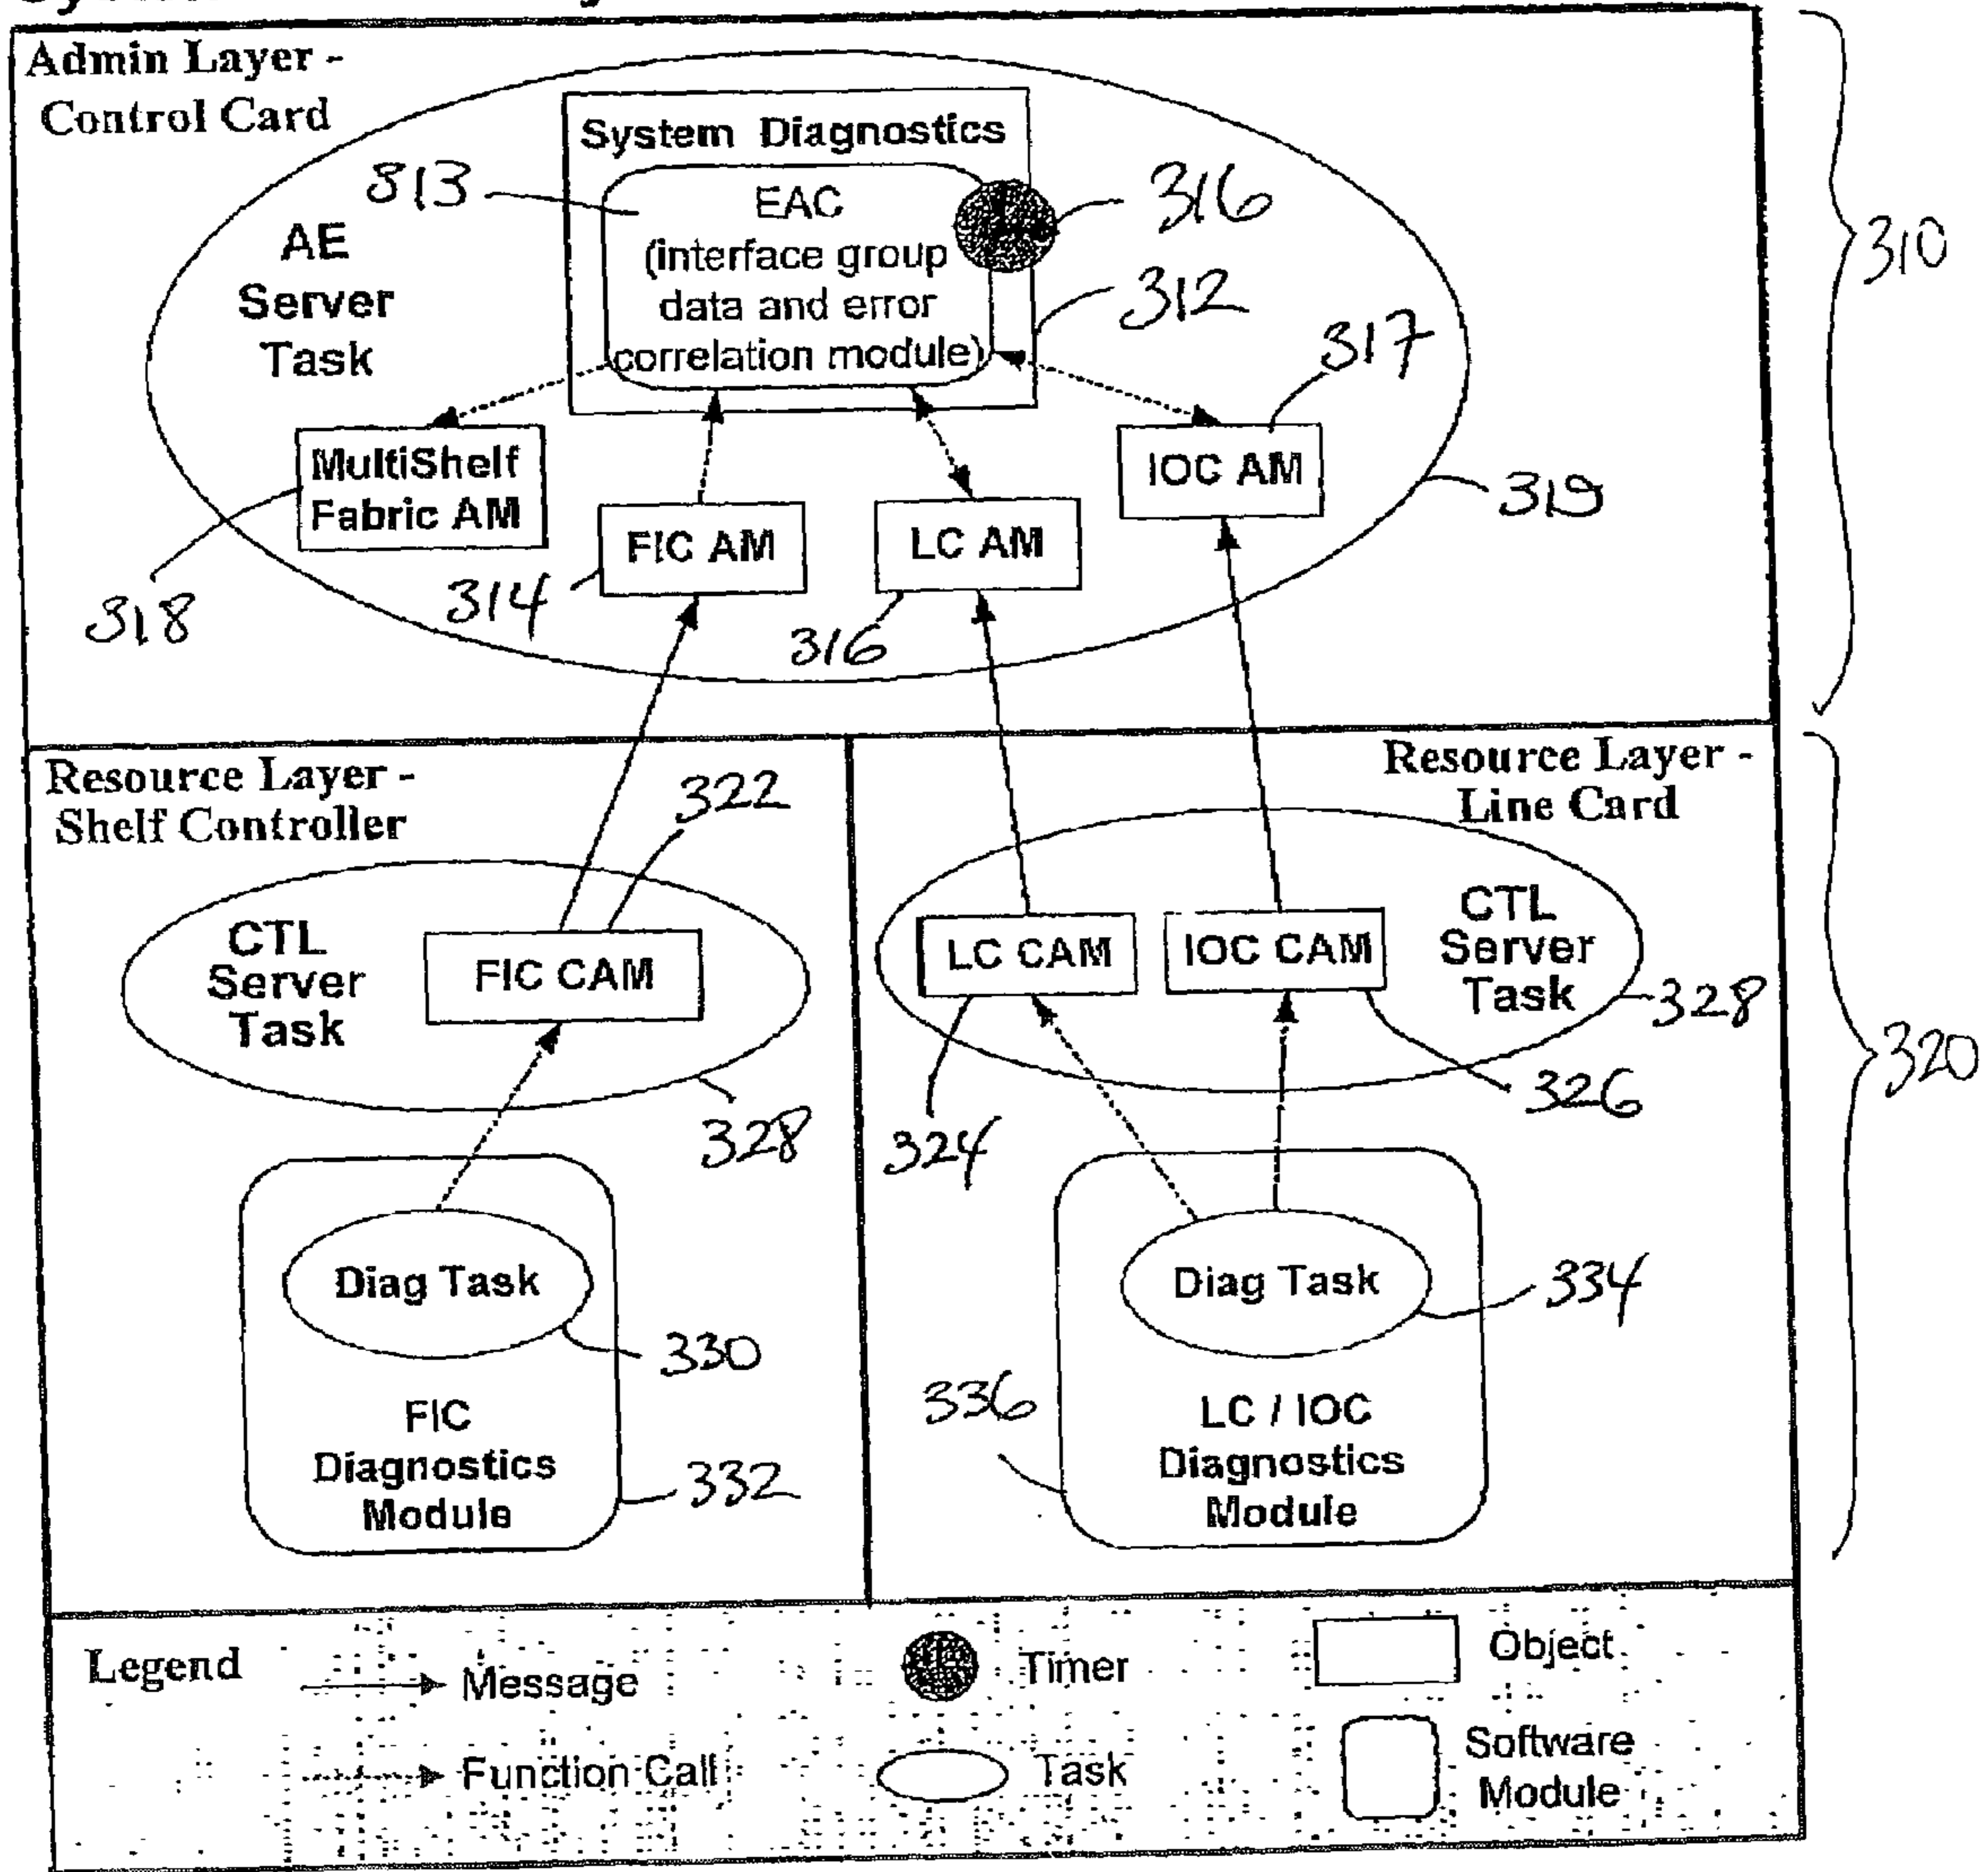 Admin Layer -
Control Card
System Diagnostics
813
EAC
(interface group
data and error
correlation module)
316
312
317
310
AE
Server
Task
MultiShelf
Fabric AM
FIC AM
LC AM
IOC AM
319
318
314
316
Resource Layer -
Shelf Controller
322
Resource Layer -
Line Card
CTL
Server
Task
FIC CAM
LC CAM
IOC CAM
CTL
Server
Task
328
328
324
326
320
Diag Task
330
FIC
Diagnostics
Module
332
Diag Task
334
336
LC / IOC
Diagnostics
Module
Legend
Message
Function Call
Timer
Task
Object
Software
Module